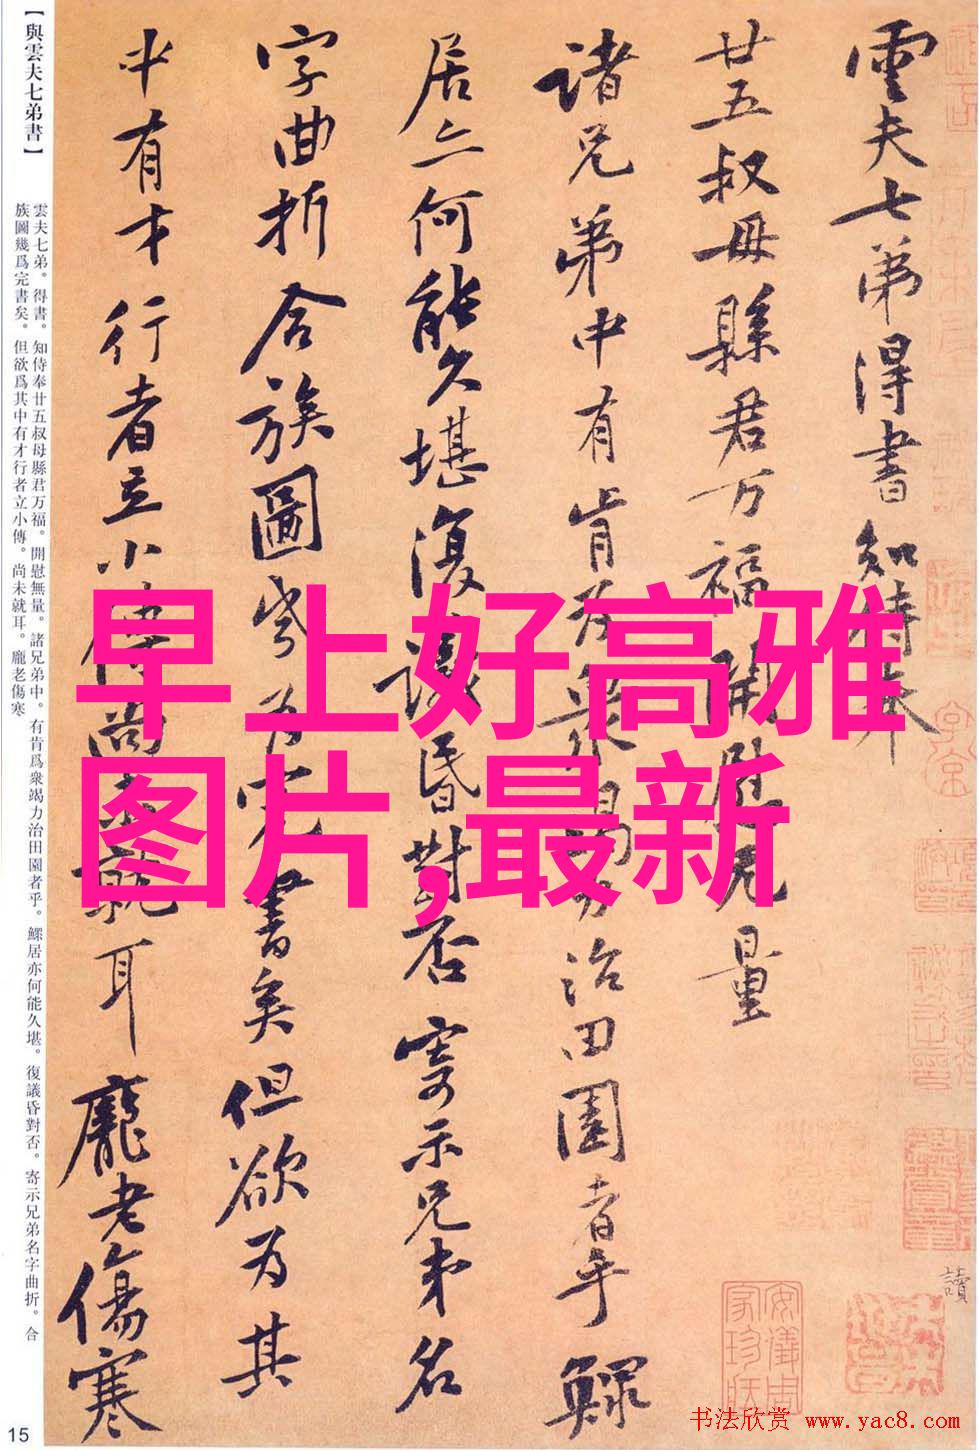 雲夫七弟得書知侍奉
廿五叔母縣君万福開慰无量
諸兄弟中有肯为衆竭力治田園者乎鰥
居亦何能久堪復議昏對否寄示兄弟名
字曲折合族圖幾为完書矣但欲为其
中有才行者立小傳尚未就耳龐老傷寒
【與雲夫七弟書】
雲夫七弟。得書。知侍奉廿五叔母縣君万福。開慰無量。諸兄弟中。有肯爲衆竭力治田園者乎。鰥居亦何能久堪。復議昏對否。寄示兄弟名字曲折。合
族圖幾爲完書矣。但欲爲其中有才行者立小傳。尚未就耳。龐老傷寒
早上好高雅
图片,最新
讀
安儀周
家珍藏
15
书法欣赏 www.yac8.com